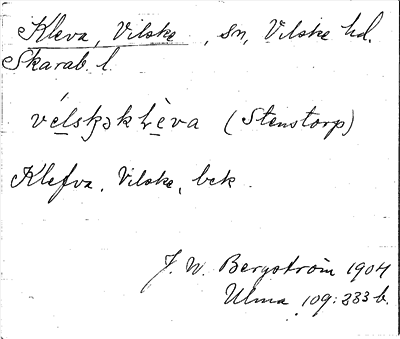 Kleva, Vilske, sn, Vilske hd.
Skarab. l.
(Stenstorp)
Klefva, Vilske, bek.
J. W. Bergström 1904
Ulma 109:333 b.